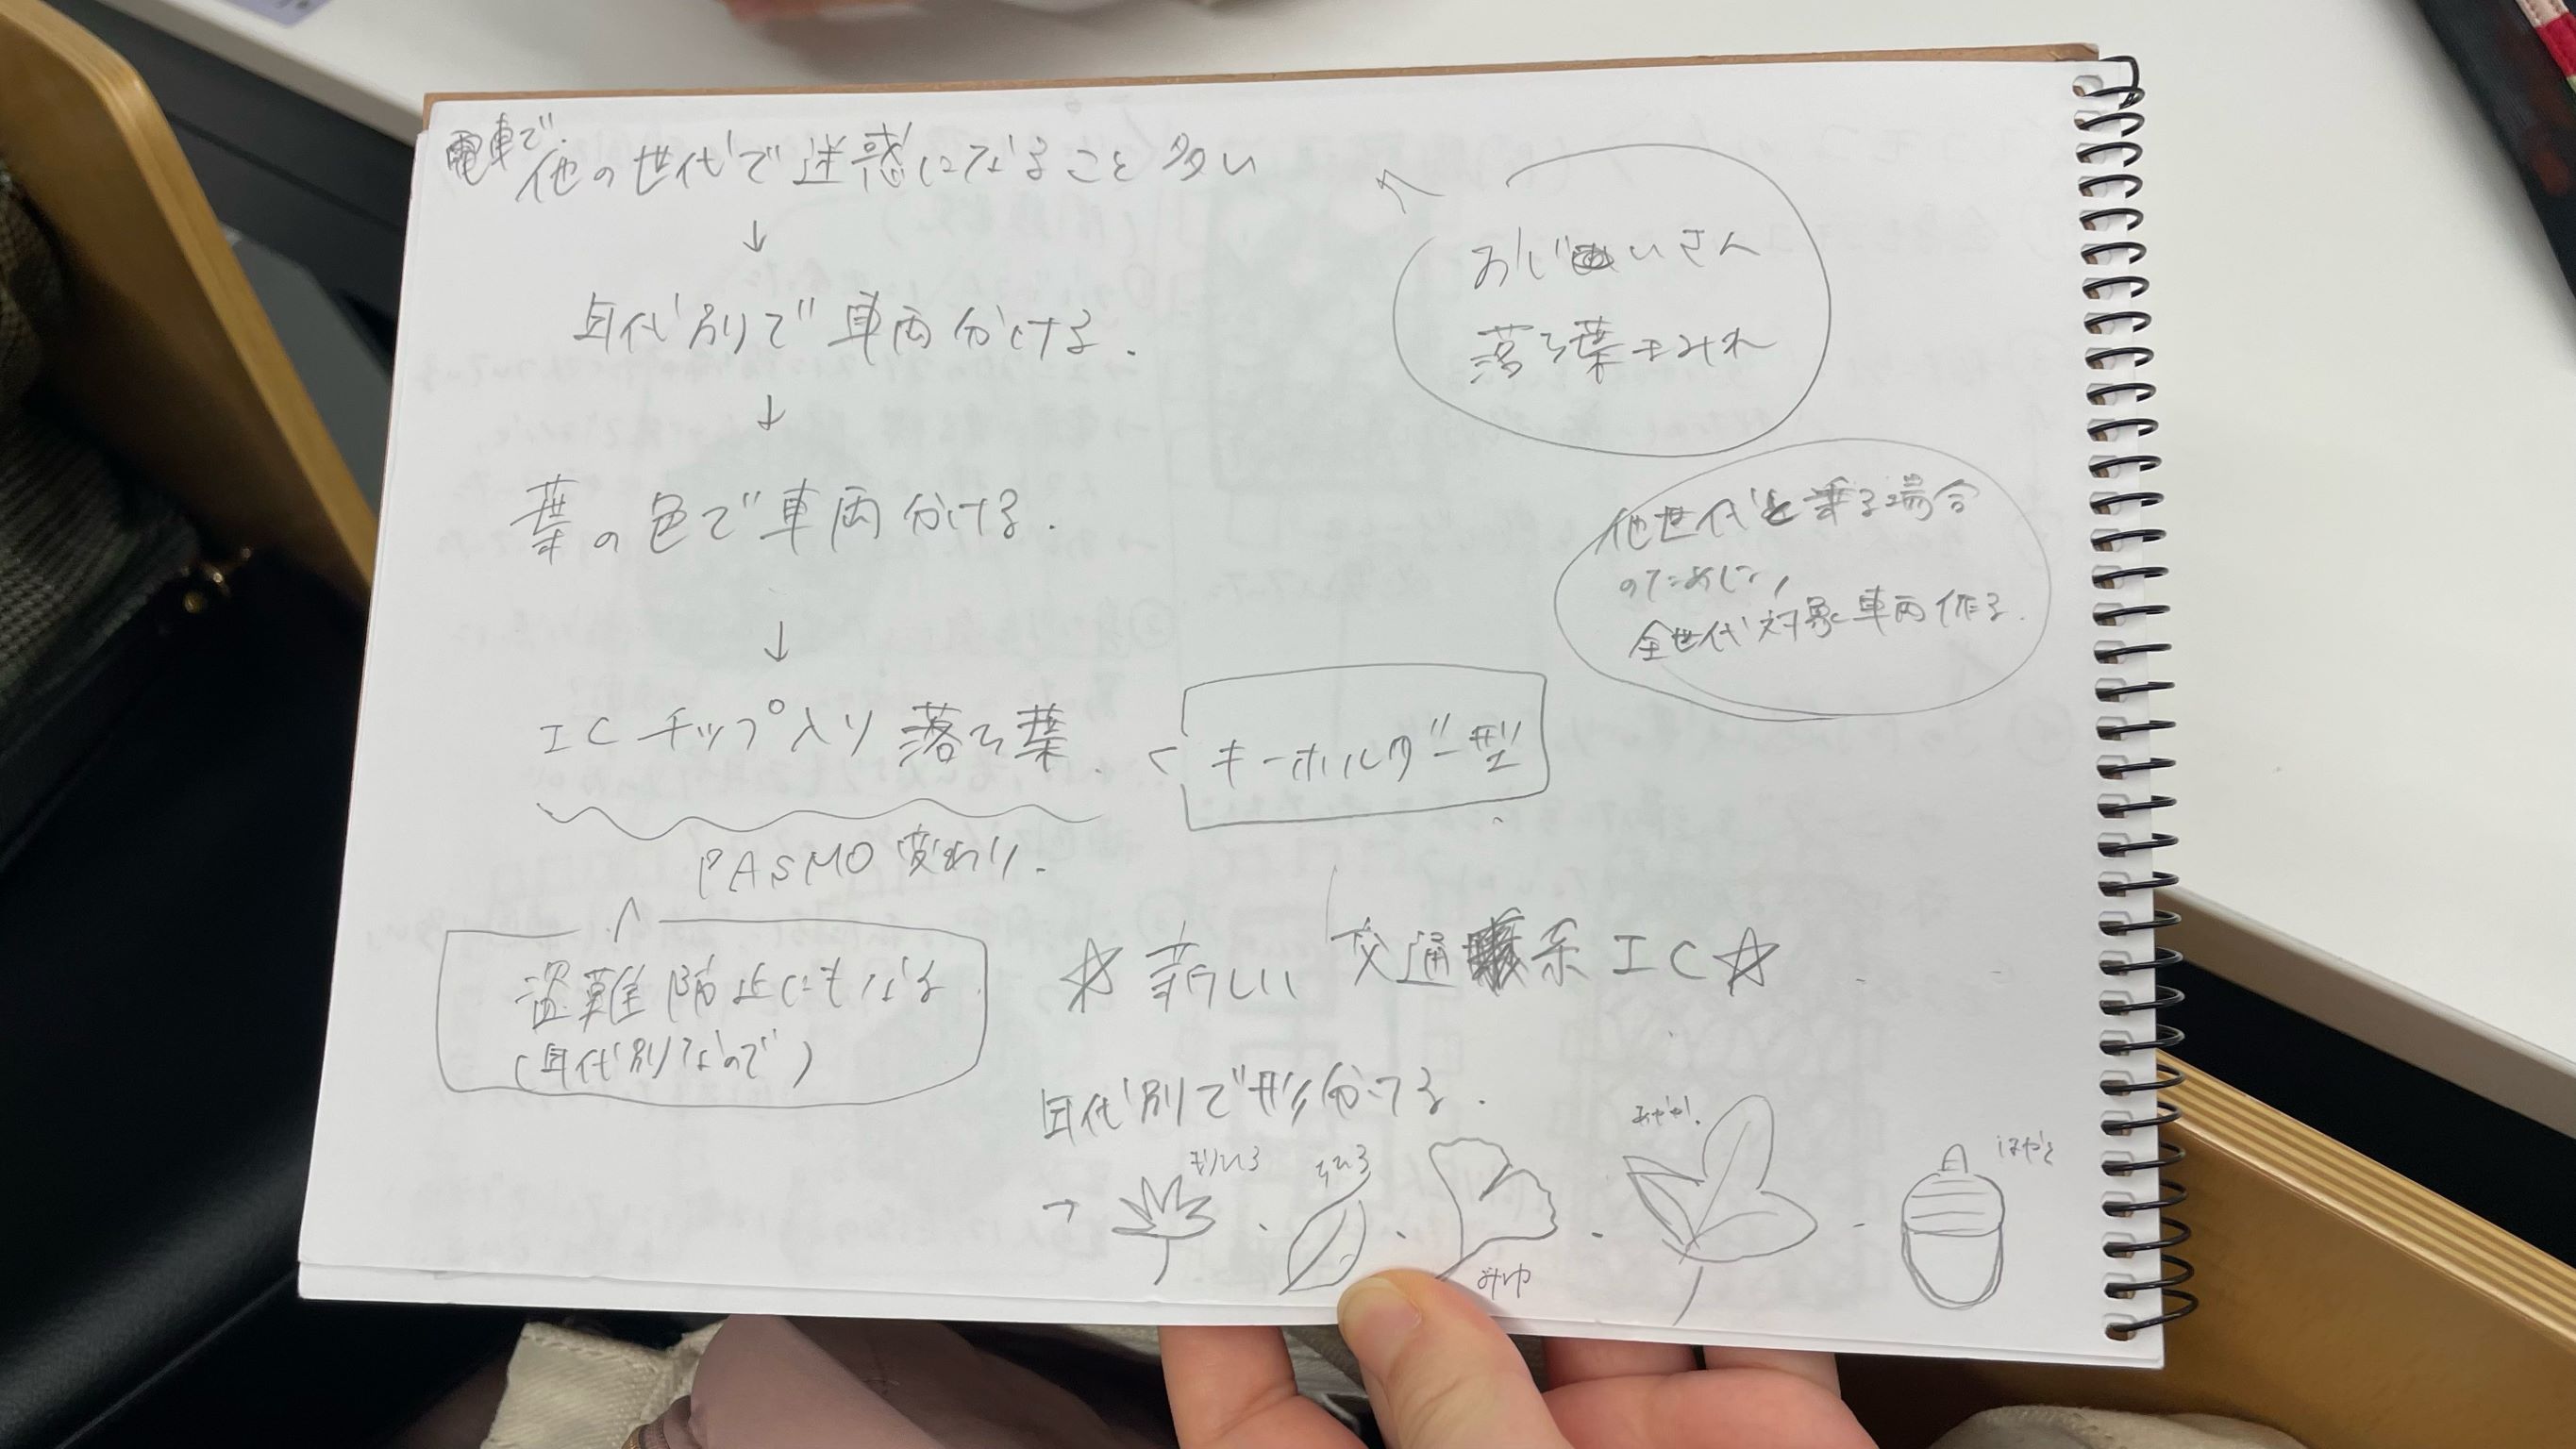 電車で
他の世代で迷惑になること多い
↓
年代別で車両分ける.
↓
葉の色で車両分ける.
↓
ICチップ入り落ち葉.
キーホルダー型
PASMO変わり.
盗難防止にもなる
(年代別なので)
おじいさん
落ち葉まみれ
他世代と乗る場合
のために,
全世代対象車両作る.
☆新しい交通系IC☆
年代別で形分ける.
→
ちひろ
みゆ
あやか
はやと